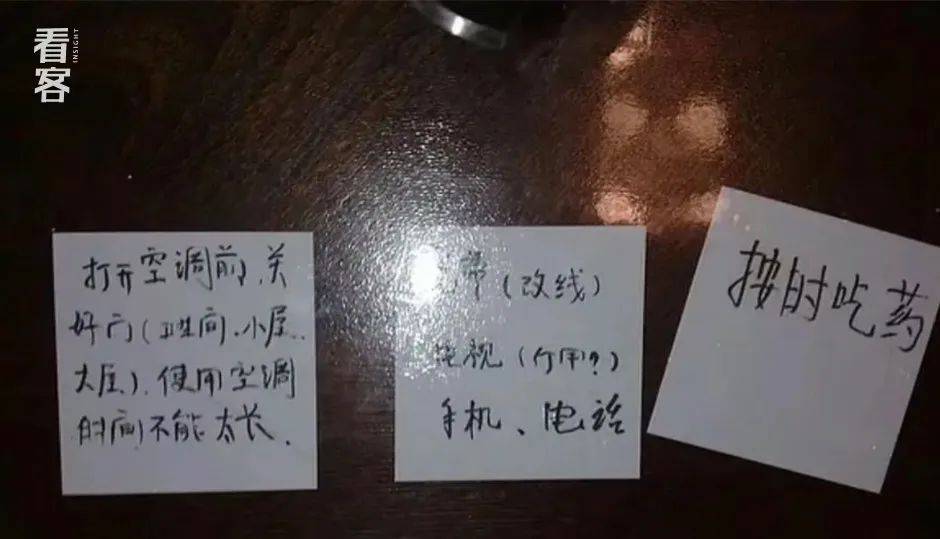 看客
INSIGHT
打开空调前,关
好门(卫生间、小屋、
大屋),使用空调
时间不能太长、
(改线)
电视
手机、电话
按时吃药